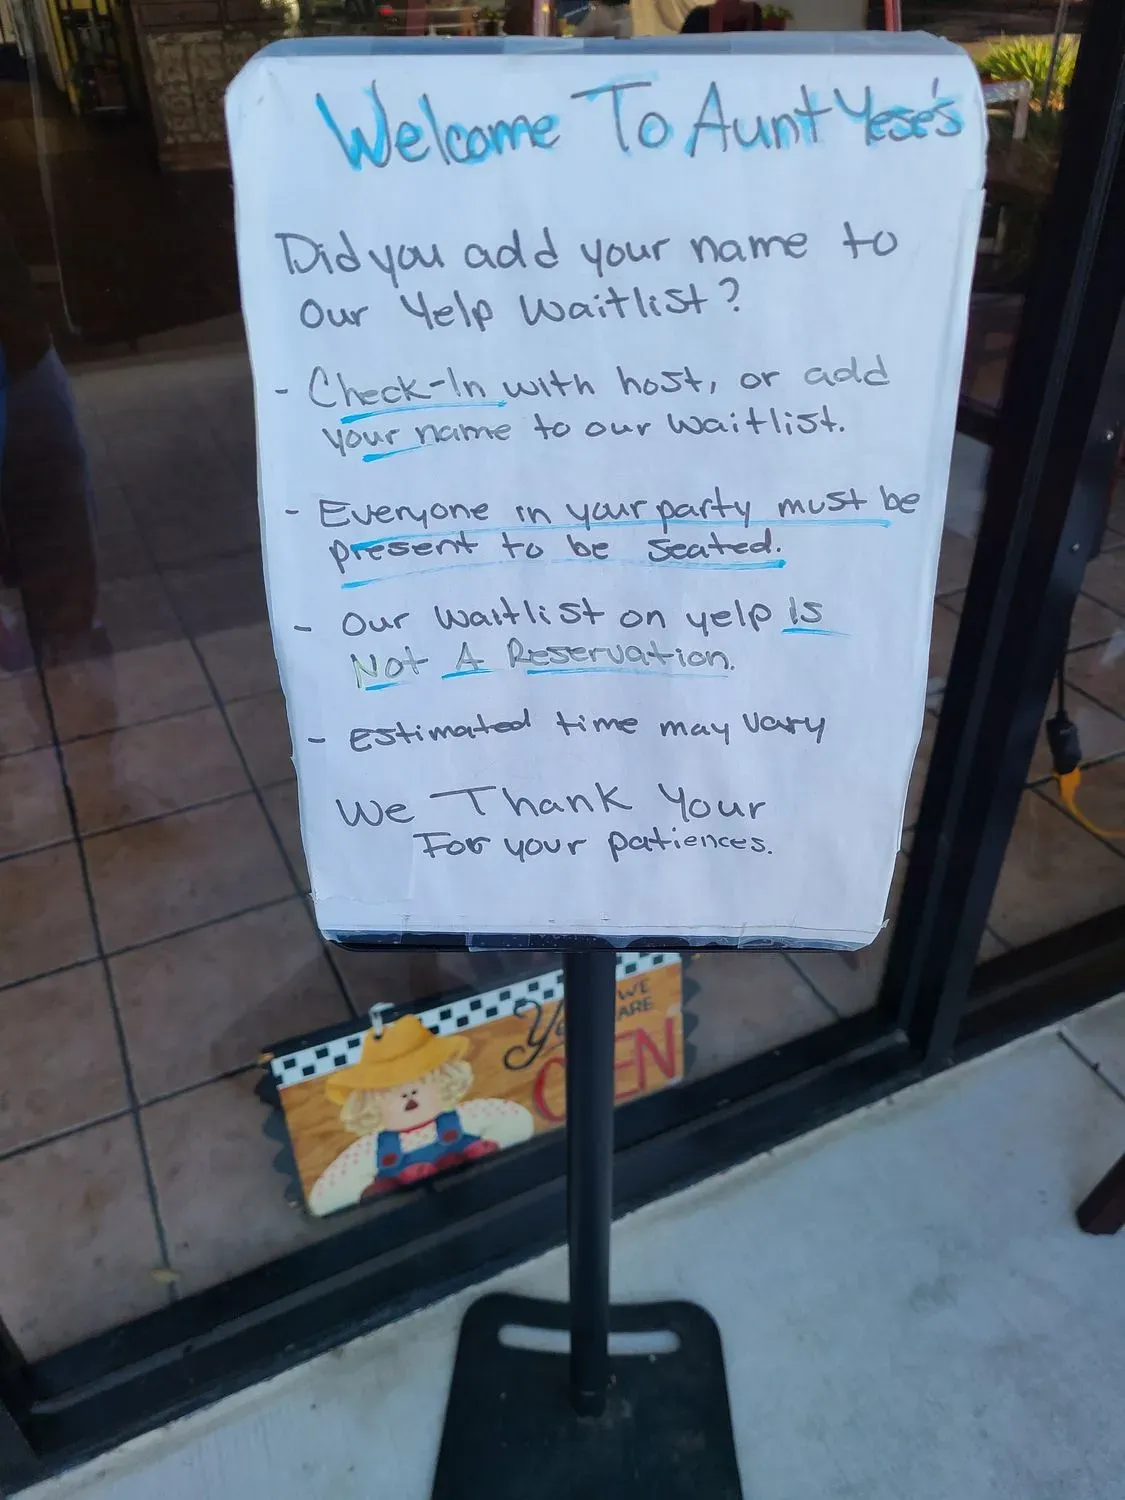 Welcome To Aunt Yese's
Did you add your name to
Our Yelp Waitlist?
- Check-In with host, or add
your name to our waitlist.
- Everyone in your party must be
present to be seated.
- Our waitlist on yelp Is
Not A Reservation.
- Estimated time may vary
We Thank Your
For your patiences.
WE
ARE
OPEN